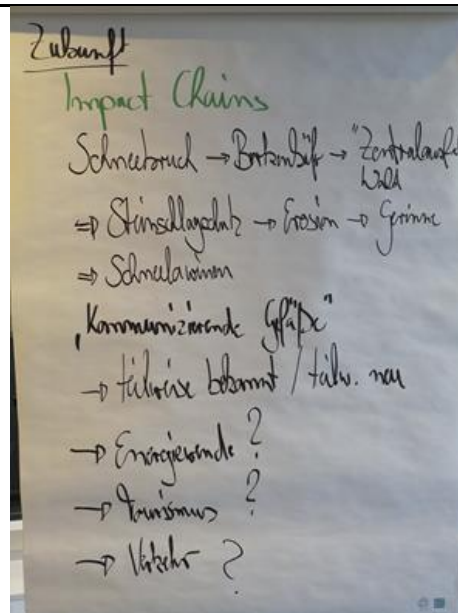 Zukunft
Impact Chains
Schneebruch → Borkenkäfer → "Zentralauf
Wald
⇒ Steinschlagschutz → Erosion → Gerinne
⇒ Schneelawinen
„Kommunizierende Gefäße“
→ teilweise bekannt / teilw. neu
→ Energiewende ?
→ Tourismus ?
→ Verkehr ?